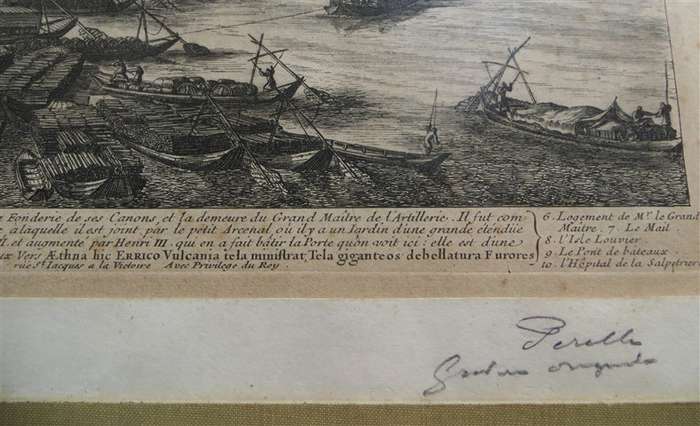 t Fonderie de ses Canons, et la demeure du Grand Maître de l'Artillerie. Il fut com-
e alaquelle il est joint par le petit Arcenal ou il y a un Jardin d'une grande étendüe
II. et augmente par Henri III. qui en a fait bâtir la Porte qu'on voit ici: elle est d'une
ux Vers Æthna hic ERRICO Vulcania tela ministrat, Tela giganteos debellatura Furores
rüe St. Jacques a la Victoire Avec Privilege du Roy
6. Logement de Mr. le Grand
Maitre. 7. Le Mail
8. L'Isle Louvier
9. Le Pont de bateaux
10. l'Hôpital de la Salpetrier
Perelle